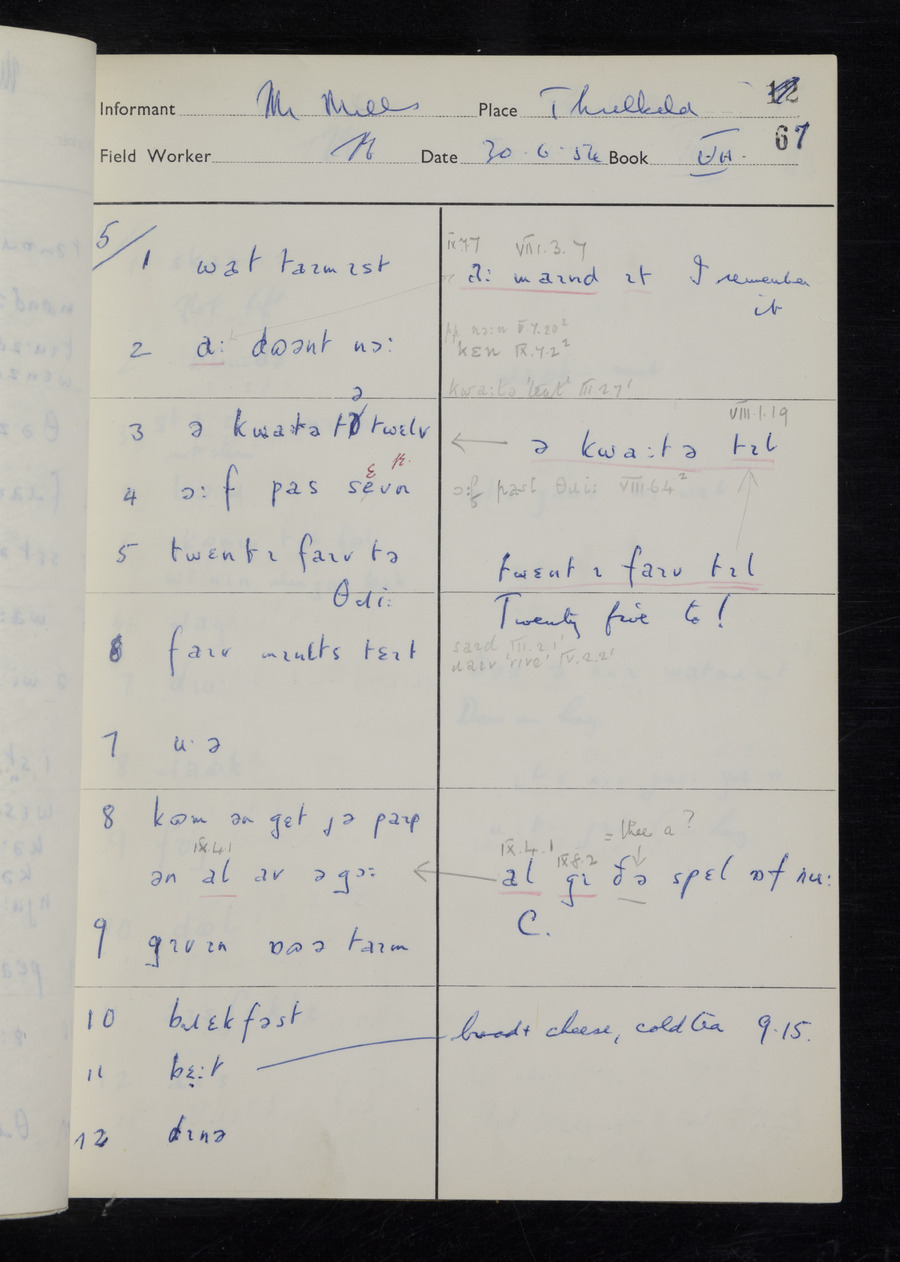 Informant Mr Mills Place Threlkeld 12
67
Field Worker Date 30.6.54 Book VII.
5/
1 wat taɪm ɪst
IX.7.7 VIII.3.7
ɑ: maɪnd ɪt I remember it
2 ɑ: dʊənt nɔ:
pp nɔ:n VI.7.20²
kɛn IX.7.2²
kwa:tə III.27¹
3 ə kwa:tə tə twɛlv
VIII.1.19
← ə kwa:tə tɪl
4 ɔ:f pas sɛvn
ɔ:f past θɹi: VIII.64²
5 twɛntɪ faɪv tə θɹi:
twɛntɪ faɪv tɪl
Twenty five to!
6 faɪv mɪnɪts tɛɪt
saɪd III.2.1¹
ɹaɪv 'rive' IV.2.2¹
7 u·ə
8 kʊm ən gɛt jə paɪp
IX.4.1
ən al av əgɔ:
= thee a?
IX.4.1 IX.8.2
← al gɪ ðə spɛl ɒf nu:
C.
9 gɪvɪn ɒʊə taɪm
10 bɹɛkfəst
11 bɛ:t
bread + cheese, cold tea 9.15.
12 dɪnə